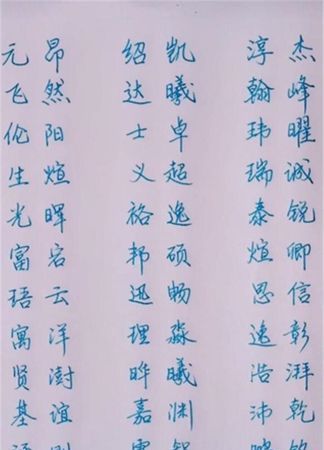 元昂 绍凯 淳杰
飞然 达曦 翰峰
伦阳 士卓 玮曜
生煊 义超 瑞诚
光晖 裕逸 泰锐
富 邦硕 煊卿
云 迅畅 思信
寓洋 理淼 彰
贤澍 晔曦 浩湃
基谊 嘉渊 沛乾